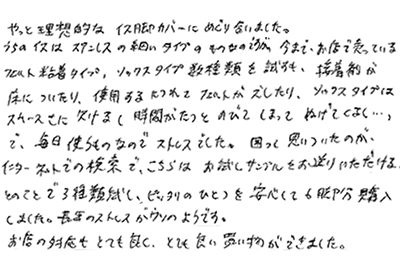 やっと理想的な イス脚カバーに めぐり合いました。
うちのイスは ステンレスの細いタイプの ものなのですが、今まで、お店で売っている
フェルト粘着タイプ、ソックスタイプ数種類を試すも、粘着剤が
床についたり、使用するにつれて フェルトが ズレたり、ソックスタイプは
スムースさに欠けるし 時間がたつと のびてしまって ぬげてくるし…っ
で、毎日使うものなので ストレスでした。困って思いついたのが、
インターネットでの検索で、こちらは お試しサンプルをお送りいただける
とのことで3種類試し、ピッタリの ひとつを 安心して 6脚分 購入
しました。長年のストレスが ウソのようです。
お店の対応も とても良く、とても良い 買い物ができました。